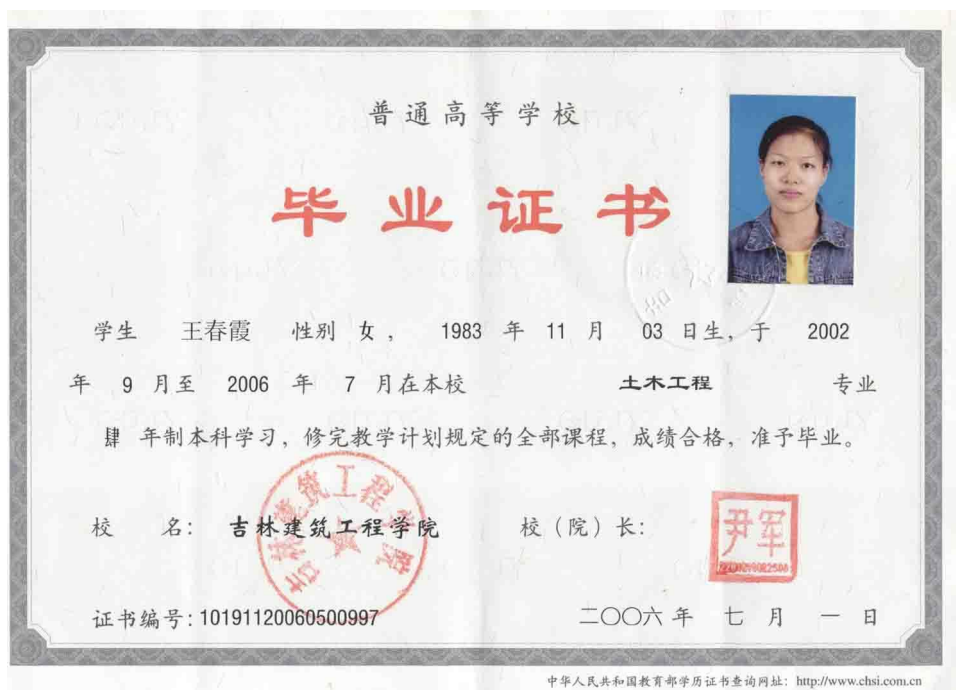 普通高等学校
毕业证书
学生 王春霞 性别 女， 1983 年 11 月 03 日生，于 2002
年 9 月至 2006 年 7 月在本校 土木工程 专业
肆 年制本科学习，修完教学计划规定的全部课程，成绩合格，准予毕业。
校 名： 吉林建筑工程学院 校（院）长： 尹军
吉林建筑工程学院
证书编号：10191120060500997 二〇〇六 年 七 月 一 日
中华人民共和国教育部学历证书查询网址：http://www.chsi.com.cn